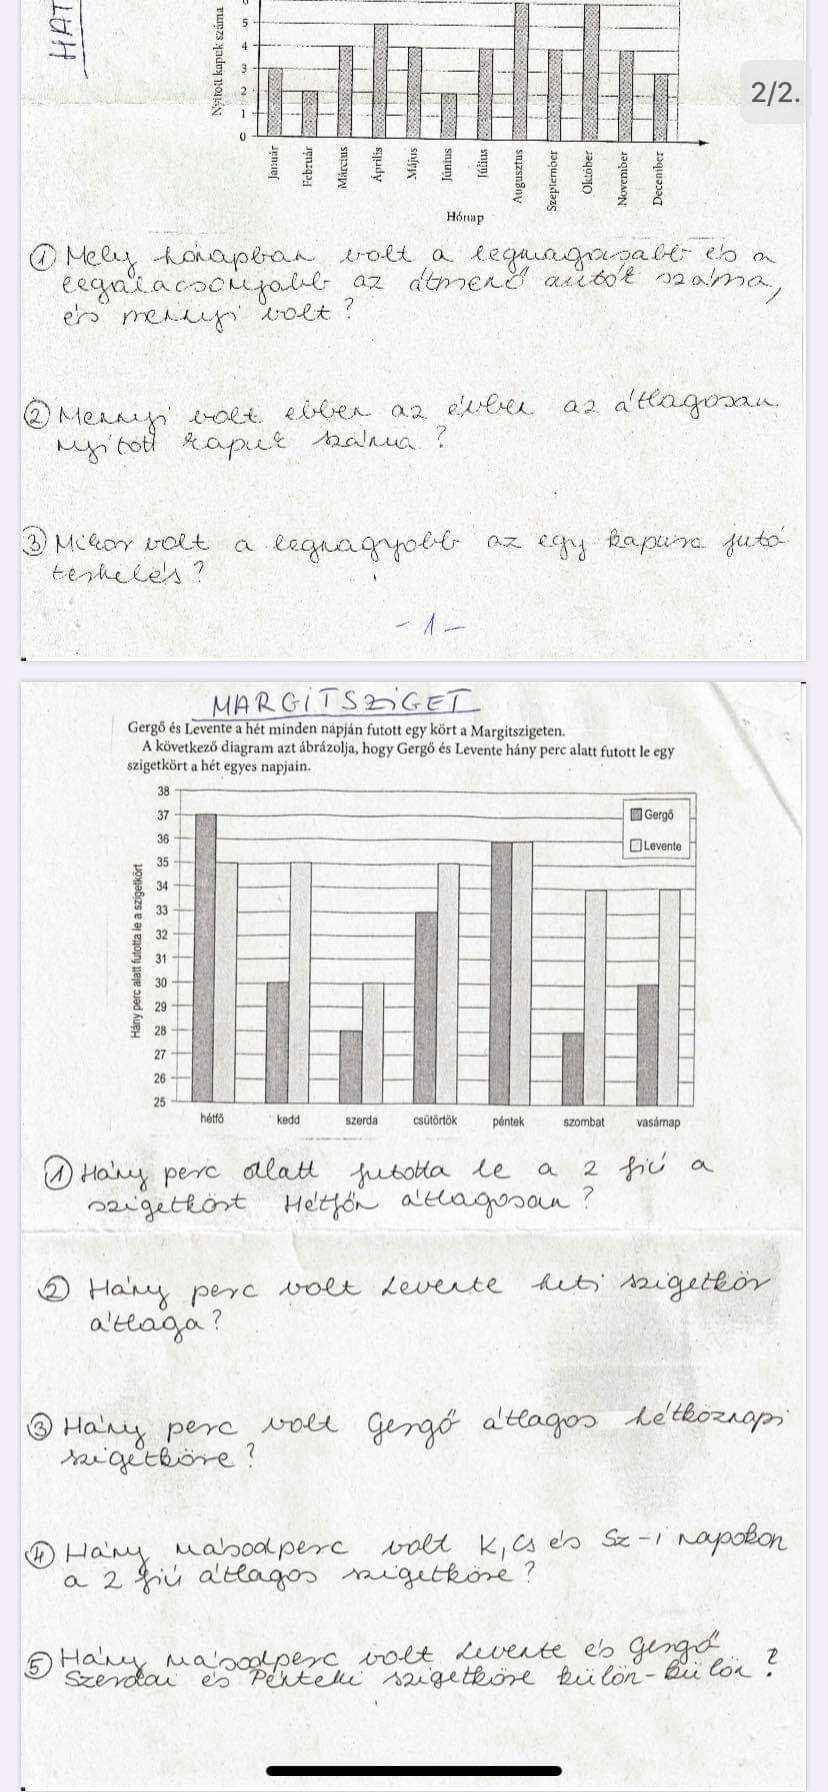 HAT
Nyitott kapuk száma
5
4
3
2
1
0
Január
Február
Március
Április
Május
Június
Július
Augusztus
Szeptember
Október
November
December
Hónap
2/2.
① Mely hónapban volt a legmagasabb és a
legalacsonyabb az átmenő autók száma,
és mennyi volt?
② Mennyi volt ebben az évben az átlagosan
nyitott kapuk száma?
③ Mikor volt a legnagyobb az egy kapura jutó
terhelés?
- 1 -
MARGITSZIGET
Gergő és Levente a hét minden napján futott egy kört a Margitszigeten.
A következő diagram azt ábrázolja, hogy Gergő és Levente hány perc alatt futott le egy
szigetkört a hét egyes napjain.
Hány perc alatt futotta le a szigetkört
38
37
36
35
34
33
32
31
30
29
28
27
26
25
Gergő
Levente
hétfő kedd szerda csütörtök péntek szombat vasárnap
① Hány perc alatt futotta le a 2 fiú a
szigetkört Hétfőn átlagosan?
② Hány perc volt Levente heti szigetkör
átlaga?
③ Hány perc volt Gergő átlagos hétköznapi
szigetköre?
④ Hány másodperc volt K, Cs és Sz-i napokon
a 2 fiú átlagos szigetköre?
⑤ Hány másodperc volt Levente és Gergő
Szerdai és Pénteki szigetköre külön-külön?